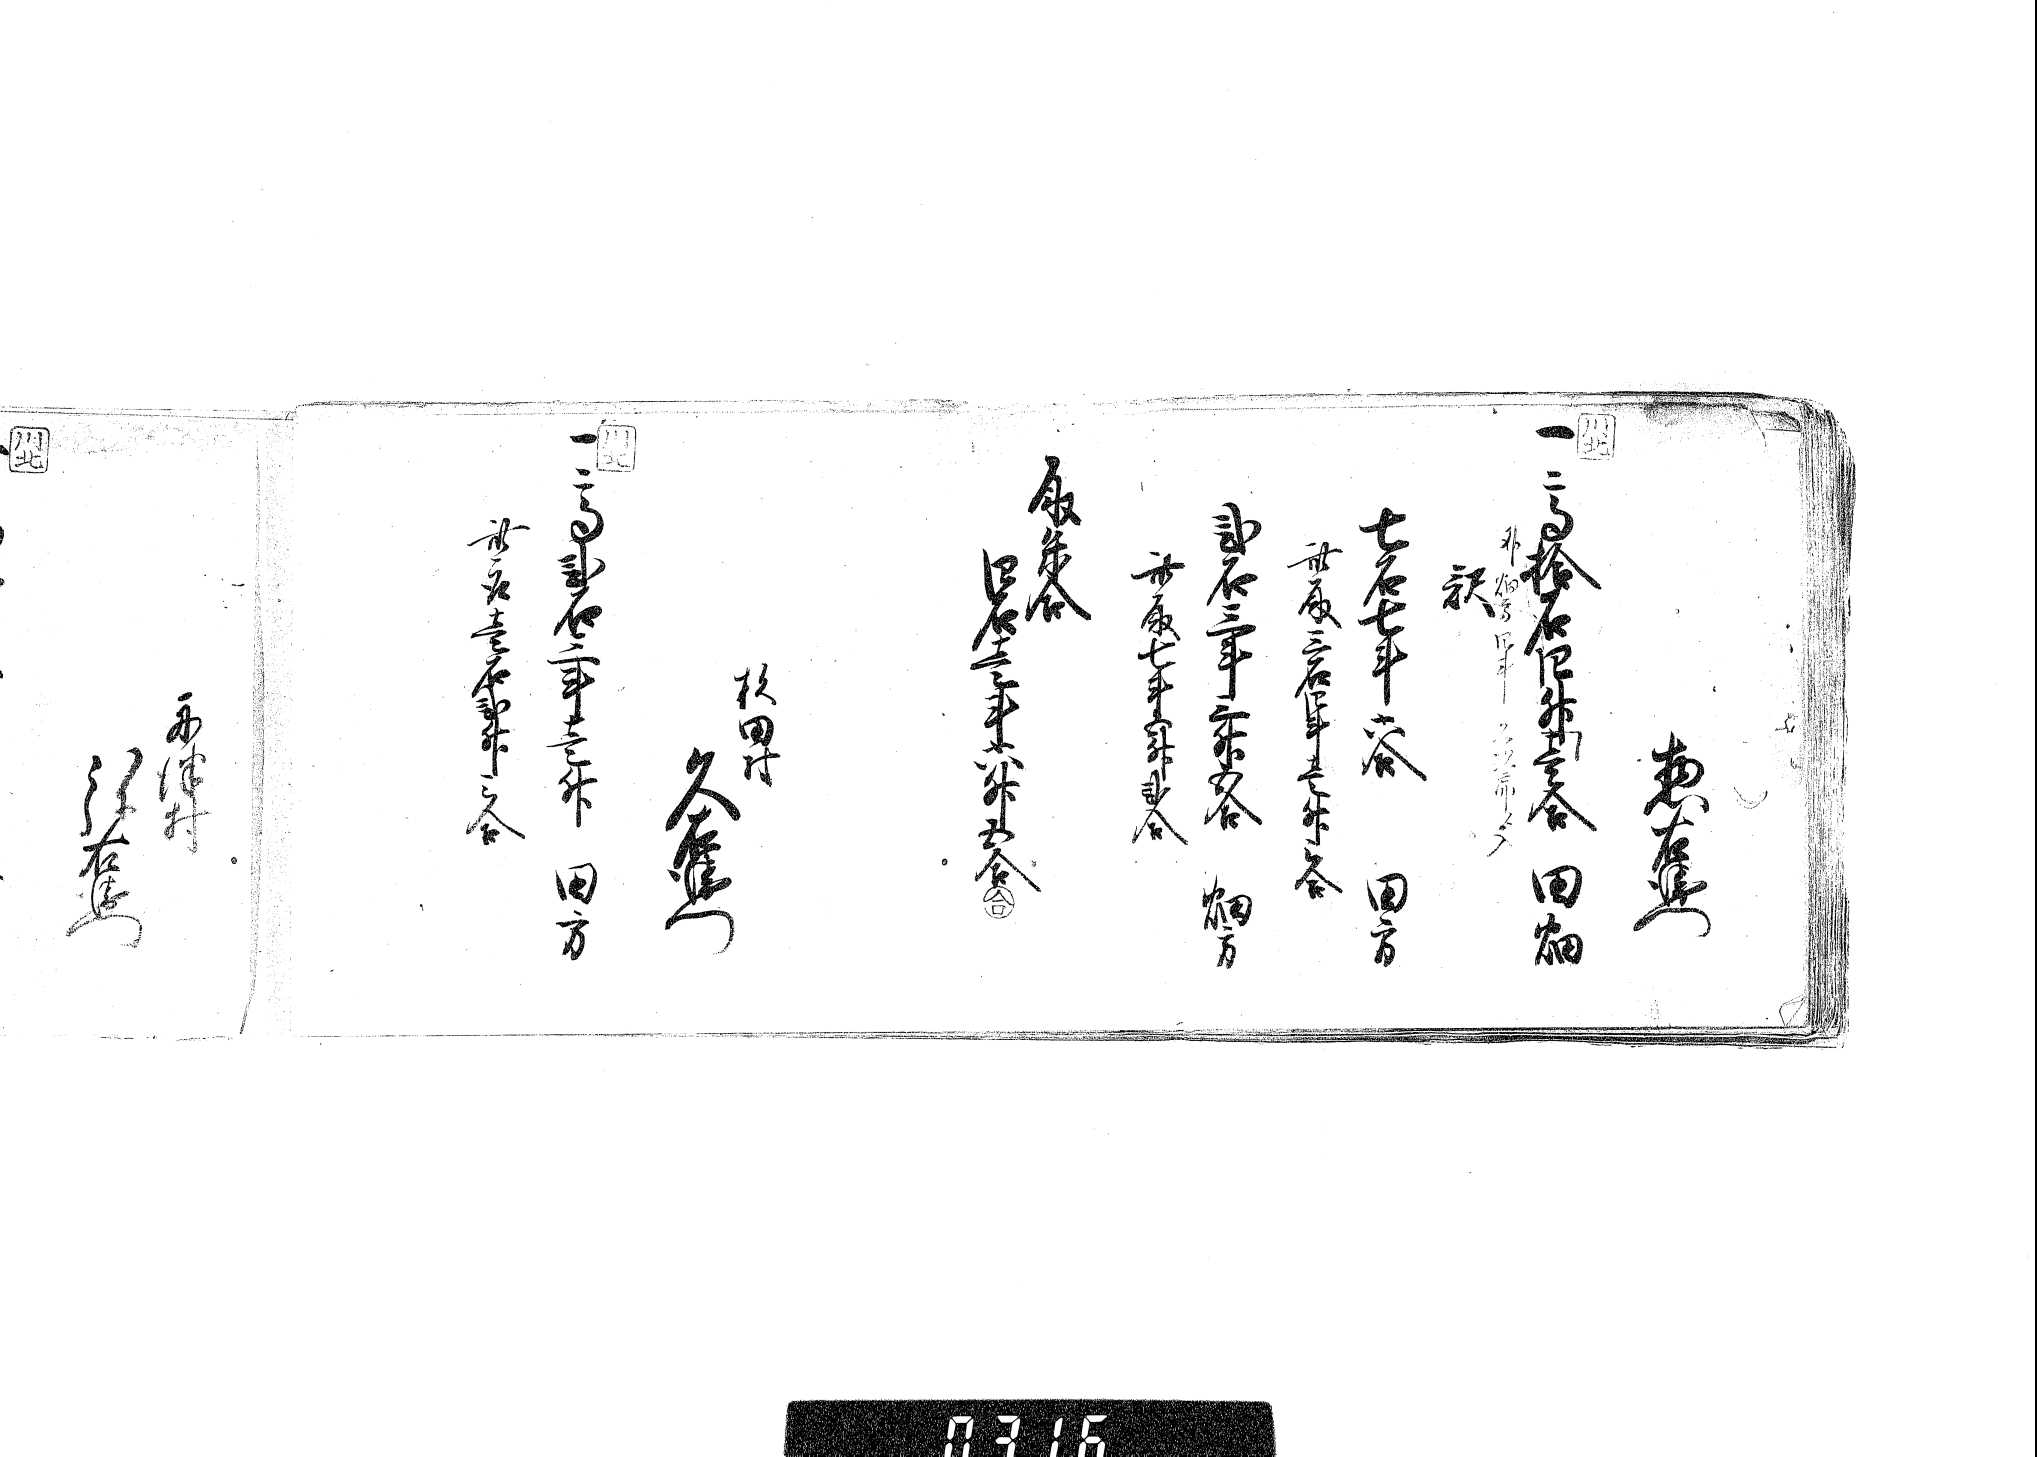 惣右衛門
川北
一高拾石四升壱合 田畑
外畑高四斗
訳
七石七斗六合 田方
此取三石四斗壱升三合
弐石三斗三升五合 畑方
此取七斗五升弐合
取米合
四石壱斗六升五合
合
杦田村
久右衛門
川北
一高弐石三斗壱升 田方
此取壱石弐升三合
津村
弥右衛門
川北
0316